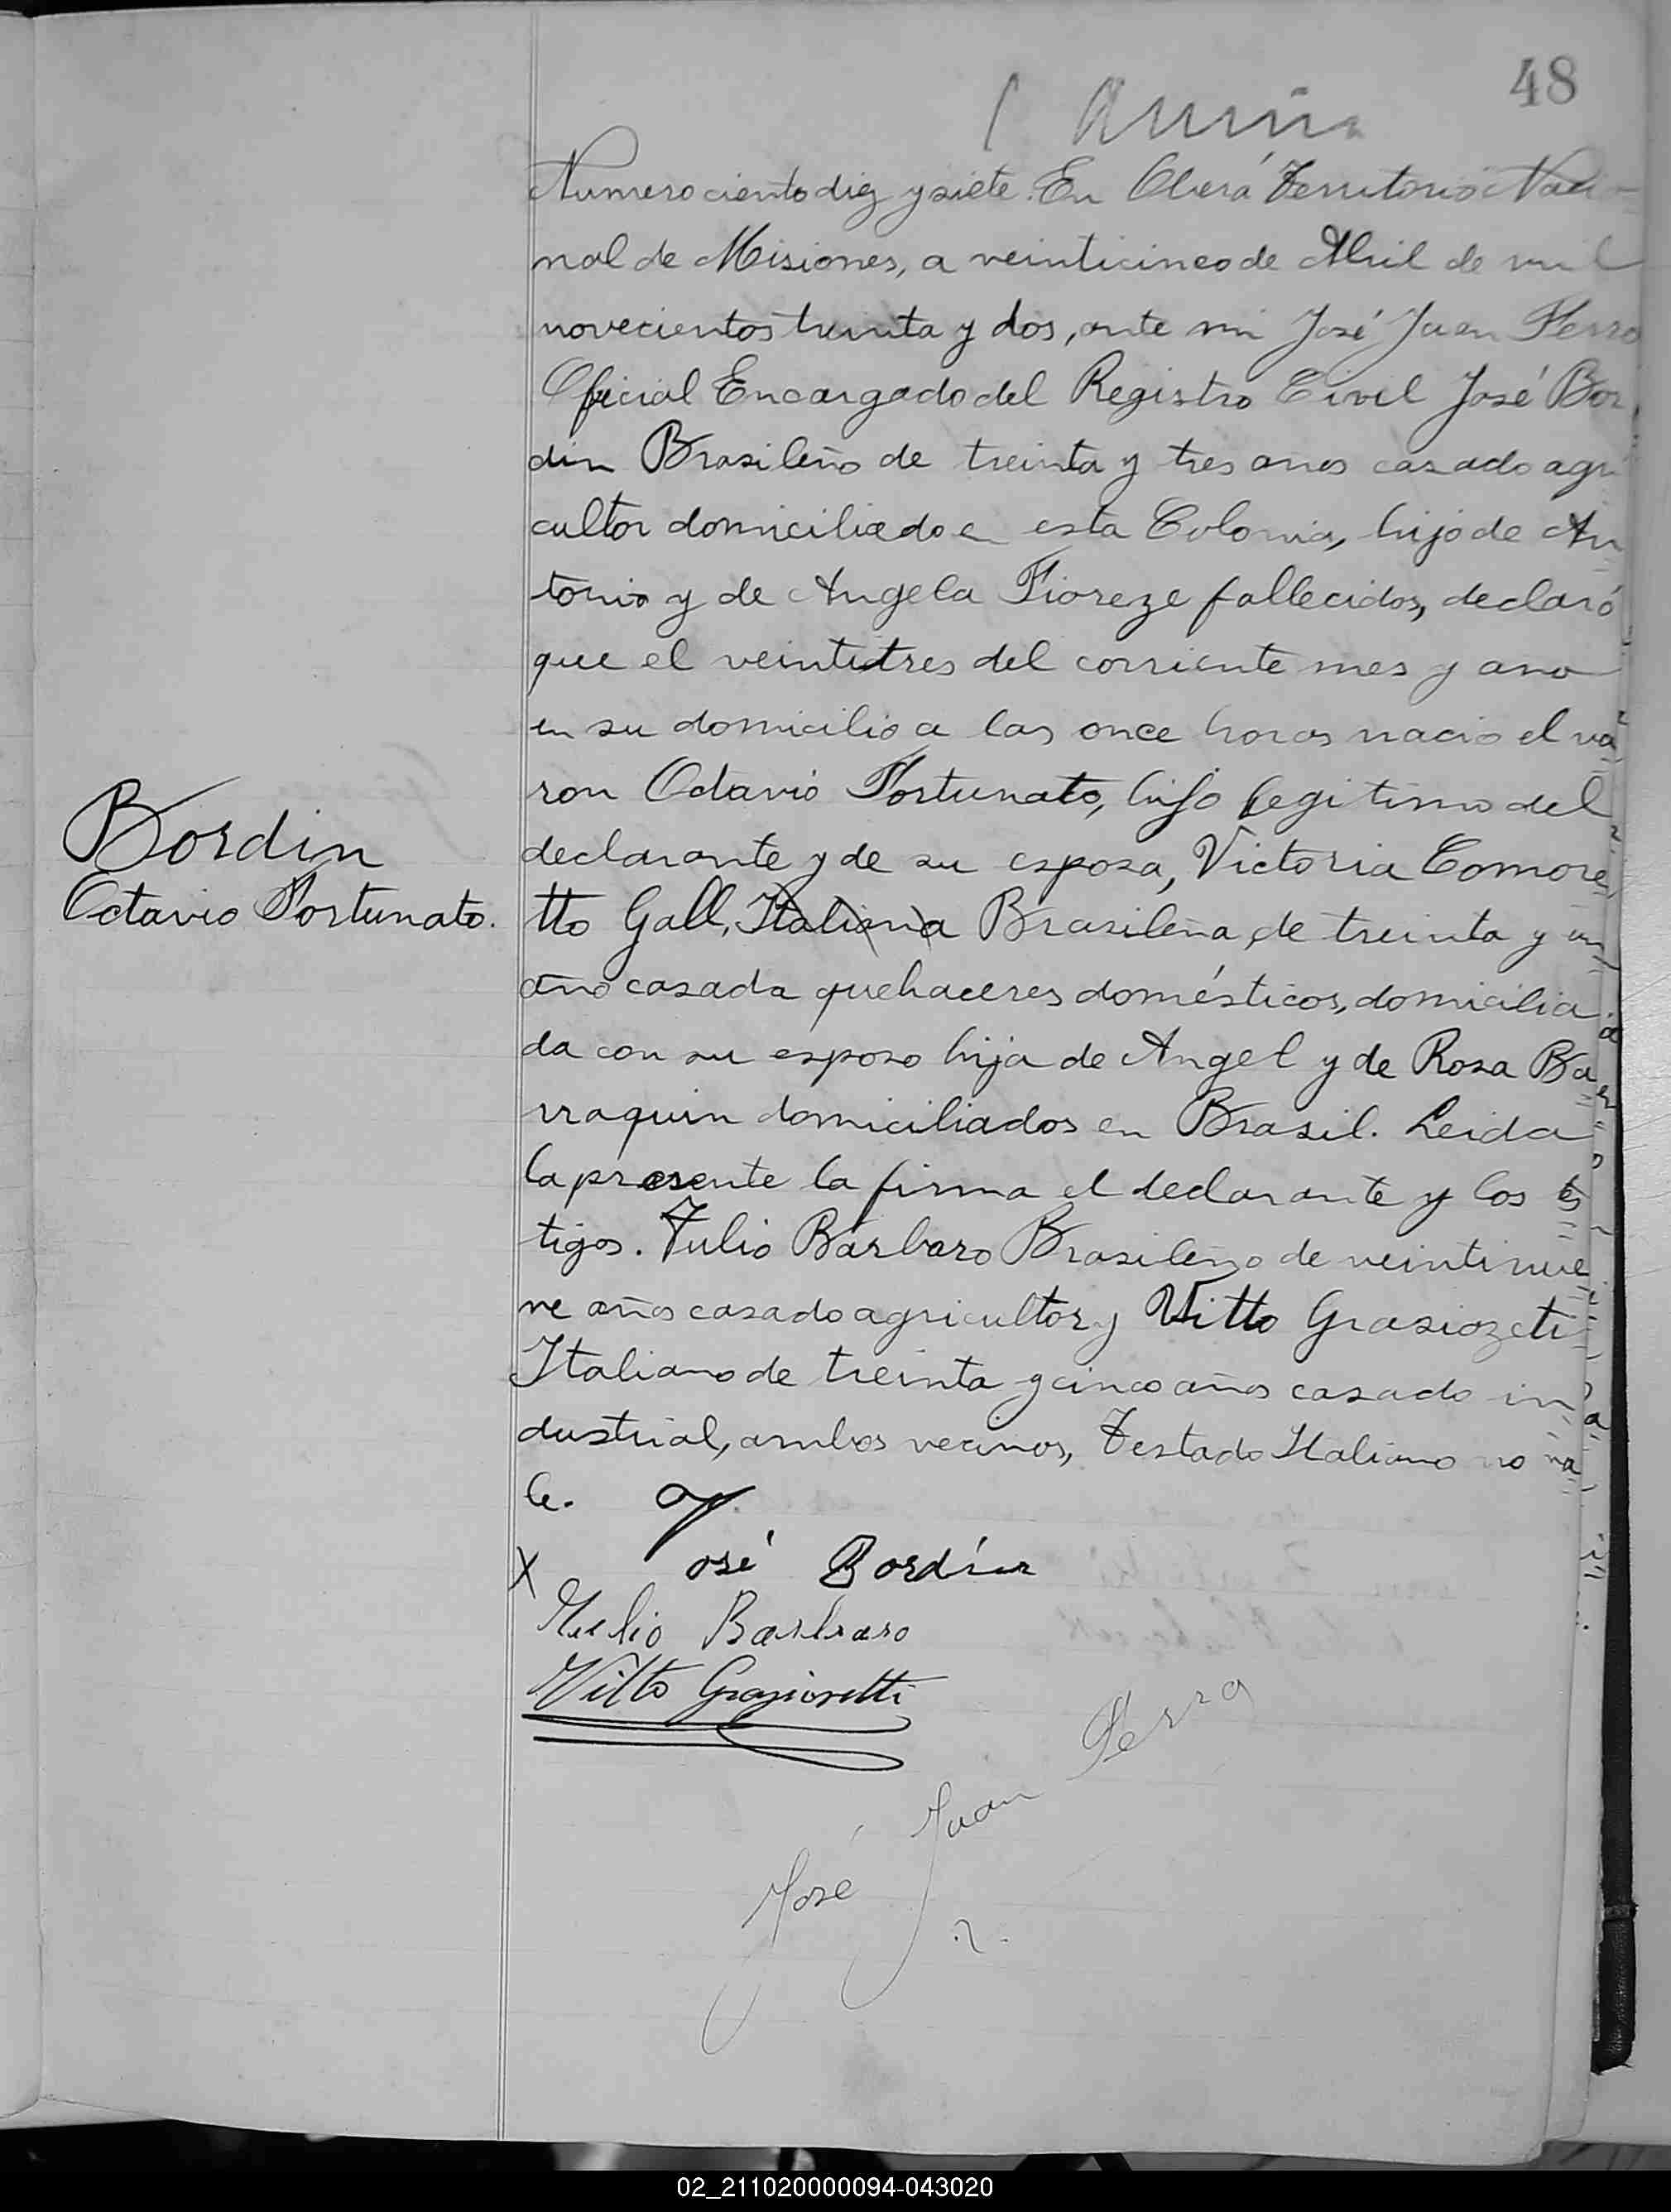 48
Numero ciento diez y siete. En Oberá Territorio Nacio-
nal de Misiones, a veinticinco de Abril de mil
novecientos treinta y dos, ante mi José Juan Ferro
Oficial Encargado del Registro Civil José Bor
din Brasileño de treinta y tres anos casado agri
cultor domiciliado en esta Colonia, hijo de An
tonio y de Angela Fioreze fallecidos, declaró
que el veintitres del corriente mes y ano
en su domicilio a las once horas nacio el va
ron Octavio Fortunato, hijo legitimo del
declarante y de su esposa, Victoria Comore
Bordin
Octavio Fortunato.
tto Gall, Italiana Brasileña, de treinta y un
año casada quehaceres domésticos, domicilia
da con su esposo hija de Angel y de Rosa Ba
rraquin domiciliados en Brasil. Leida
la presente la firma el declarante y los tes
tigos. Julio Bárbaro Brasileño de veintinue
ve años casado agricultor y Vitto Grasiozeti
Italiano de treinta y cinco años casado in
dustrial, ambos vecinos, Testado Italiano no va
le.
X José Bordín
Julio Barbaro
Vitto Grazioretti
José Juan Ferro
02_211020000094-043020